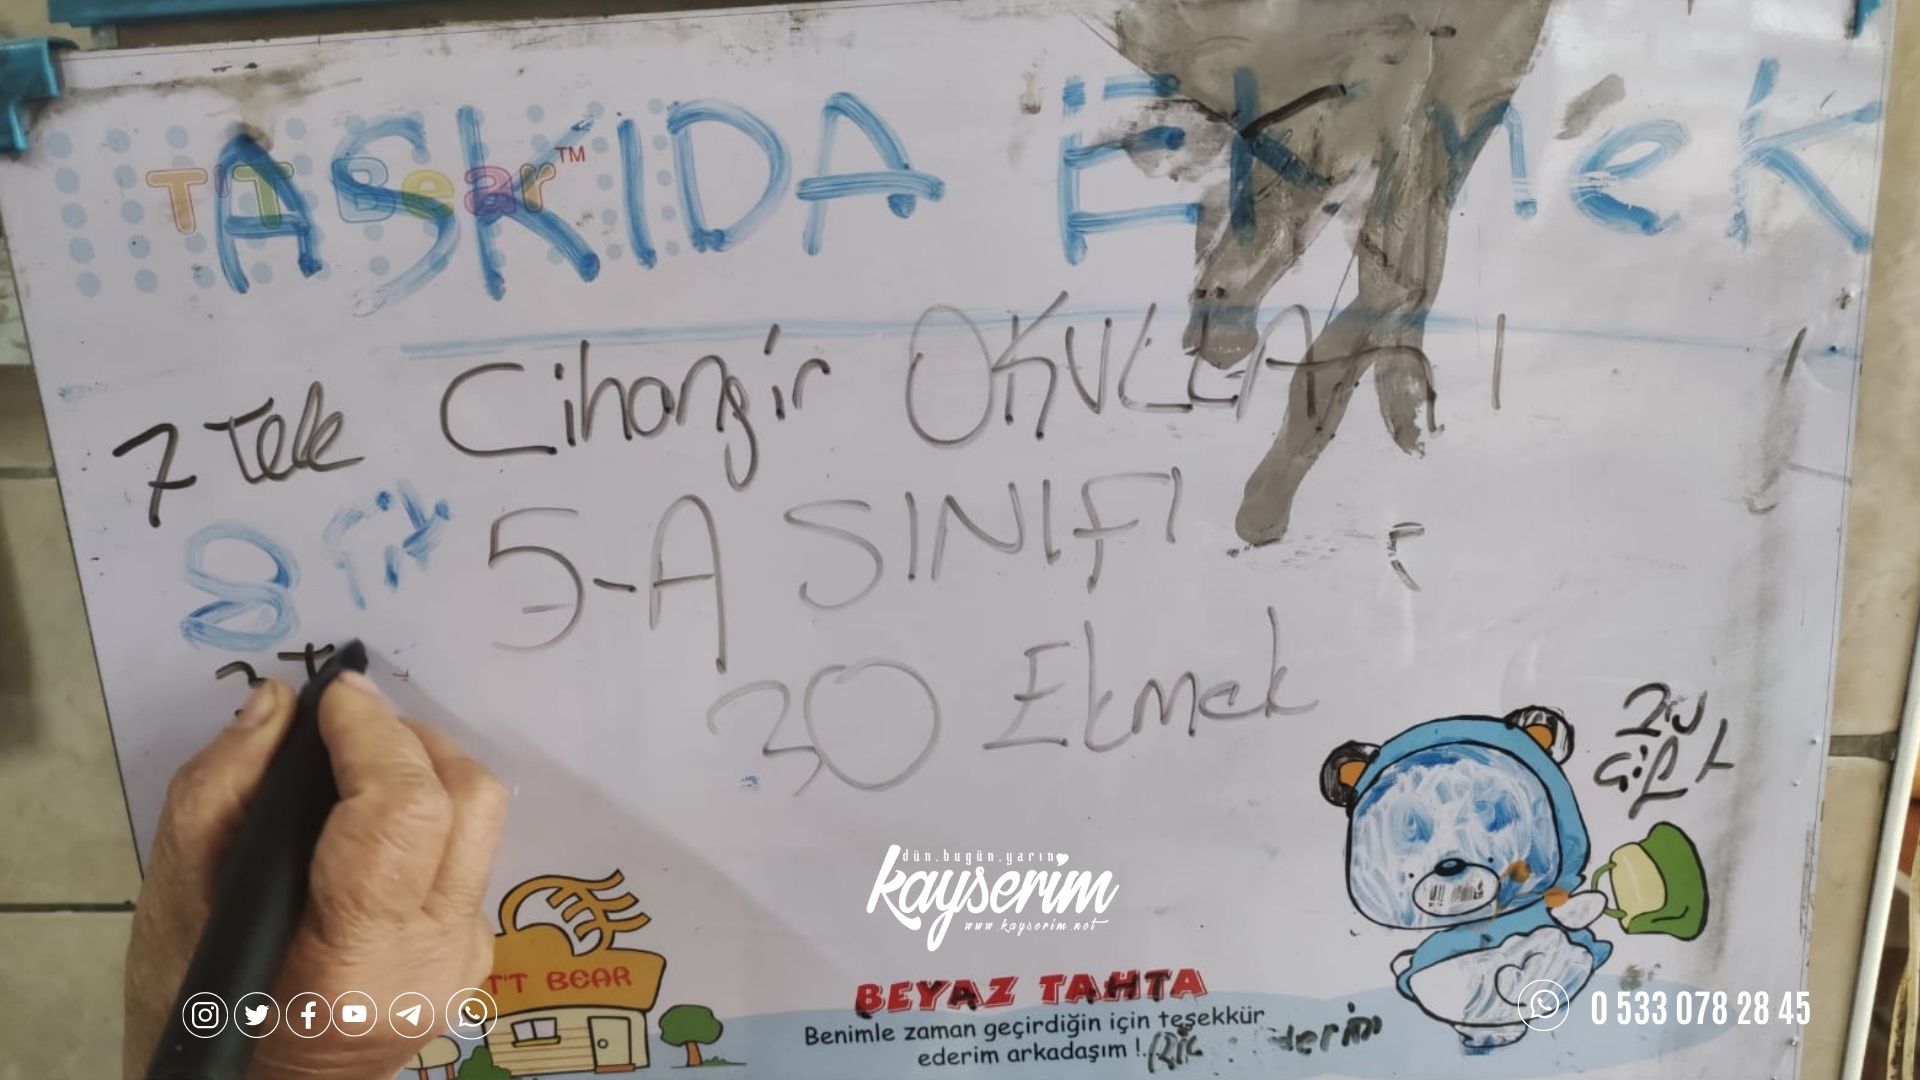 T'T Bear™
ASKIDA EKmeK
7 Tek Cihangir OKULLARI
8 Çift 5-A SINIFI
30 Ekmek
Çift
dün.bugün.yarın
kayserim
www.kayserim.net
T'T BEAR
BEYAZ TAHTA
Benimle zaman geçirdiğin için teşekkür
ederim arkadaşım !
0 533 078 28 45